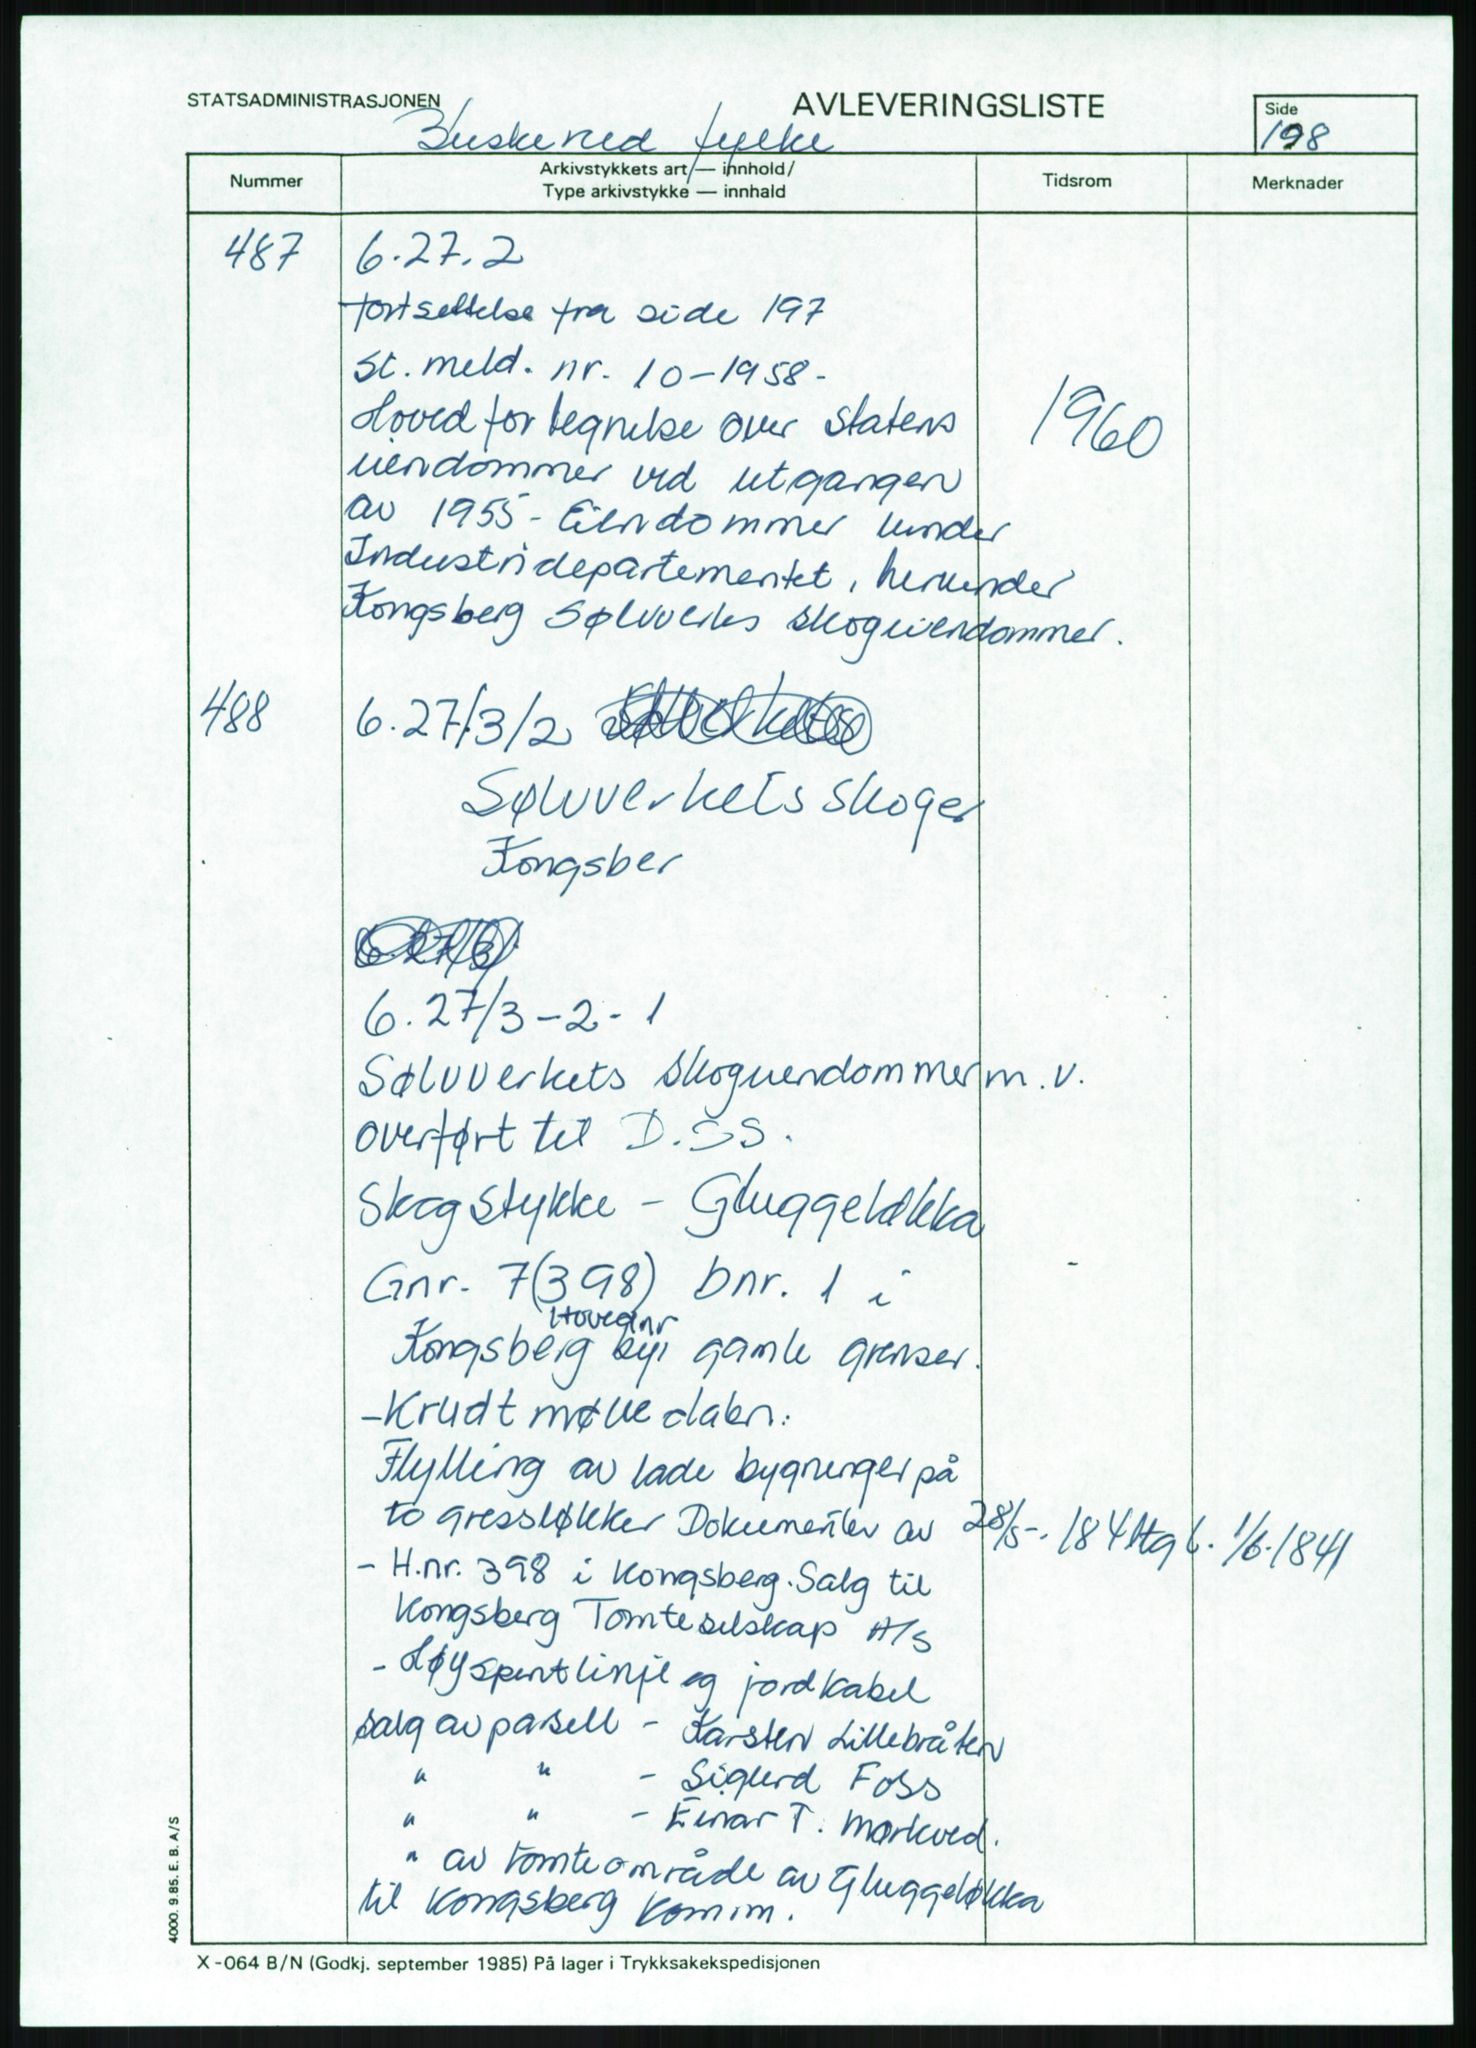 STATSADMINISTRASJONEN
AVLEVERINGSLISTE
Side
198
Buskerud fylke
Nummer
Arkivstykkets art — innhold/
Type arkivstykke — innhald
Tidsrom
Merknader
487 6.27.2
fortsettelse fra side 197
St. meld. nr. 10-1958-
Hovedfortegnelse over Statens 1960
eiendommer ved utgangen
av 1955 - Eiendommer under
Industridepartementet, herunder
Kongsberg Sølvverks skogeiendommer.
488 6.27/3/2
Sølvverkets skoger
Kongsber
6.27/3
6.27/3-2-1
Sølvverkets skogeiendommer m.v.
overført til D.S.S.
Skogstykke - Gluggeløkka
Gnr. 7(398) bnr. 1 i
Hovednr
Kongsberg byi gamle grenser.
- Krudtmølledalen:
Flytting av lade bygninger på
to gressløkker Dokumentev av 28/5-. 1841 tgl. 1/6.1841
- H.nr. 398 i Kongsberg. Salg til
Kongsberg Tomteselskap A/S
- Høyspentlinje og jordkabel
salg av parsell - Karsten Lillebråten
" " - Sigurd Foss
" " - Einar T. Morkved.
" av tomteområde av Gluggeløkka
til Kongsberg Komm.
4000. 9.85. E. B. A/S
X-064 B/N (Godkj. september 1985) På lager i Trykksakekspedisjonen